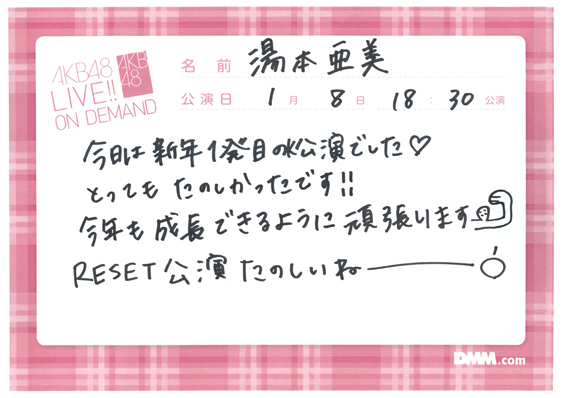 AKB48
LIVE!!
ON DEMAND
AKB
48
名前 湯本亜美
公演日 1月 8日 18:30 公演
今日は新年1発目の公演でした♡
とっても たのしかったです!!
今年も成長できるように頑張ります
RESET公演 たのしいね
DMM.com